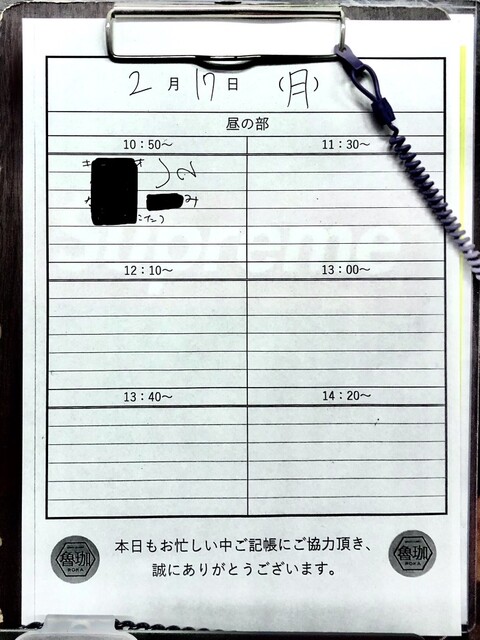 2月17日 (月)
昼の部
10：50～ 11：30～
12：10～ 13：00～
13：40～ 14：20～
Supreme
魯珈
ROKA
本日もお忙しい中ご記帳にご協力頂き、
誠にありがとうございます。
魯珈
ROKA